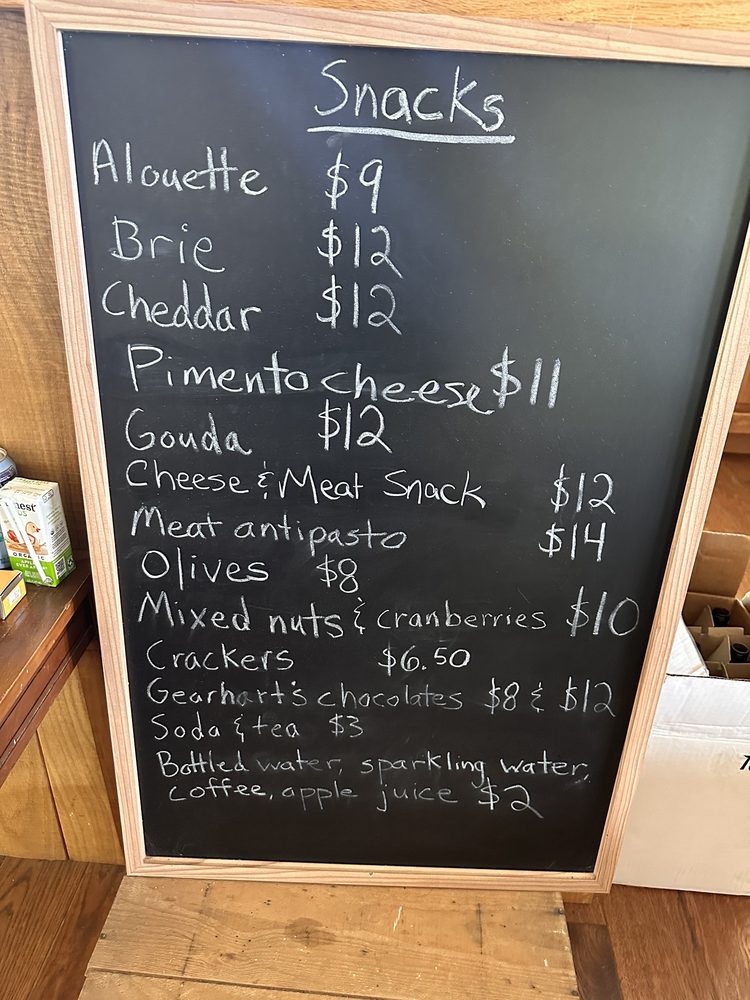 Snacks
Alouette $9
Brie $12
Cheddar $12
Pimento cheese $11
Gouda $12
Cheese & Meat Snack $12
Meat antipasto $14
Olives $8
Mixed nuts & cranberries $10
Crackers $6.50
Gearhart's chocolates $8 & $12
Soda & tea $3
Bottled water, sparkling water,
coffee, apple juice $2